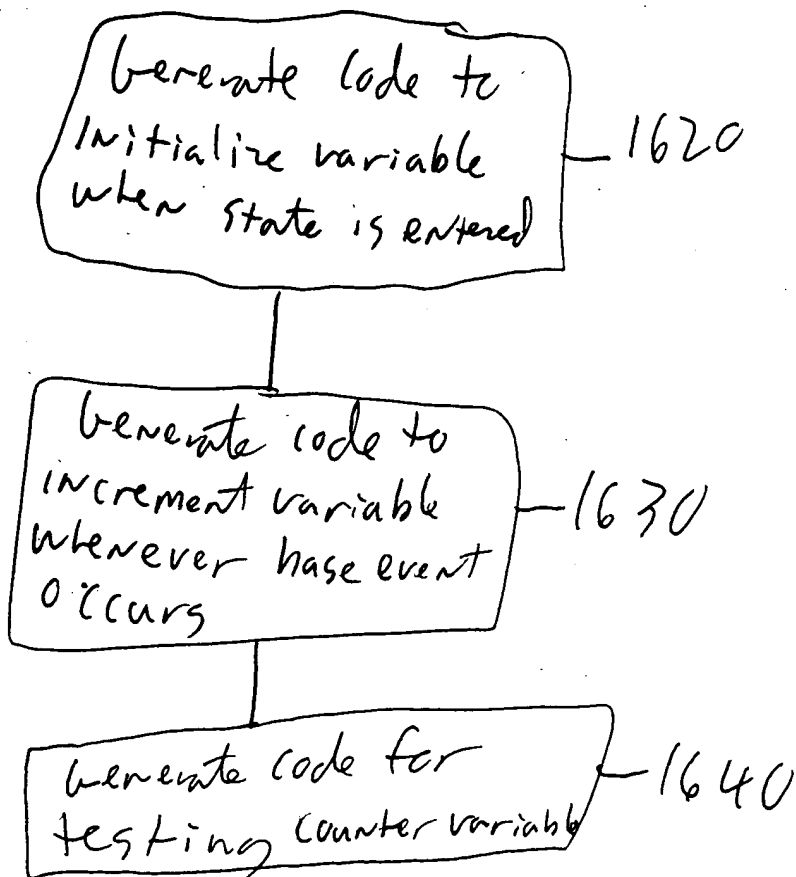 Generate code to
initialize variable
when state is entered
1620
Generate code to
increment variable
whenever base event
occurs
1630
Generate code for
testing counter variable
1640